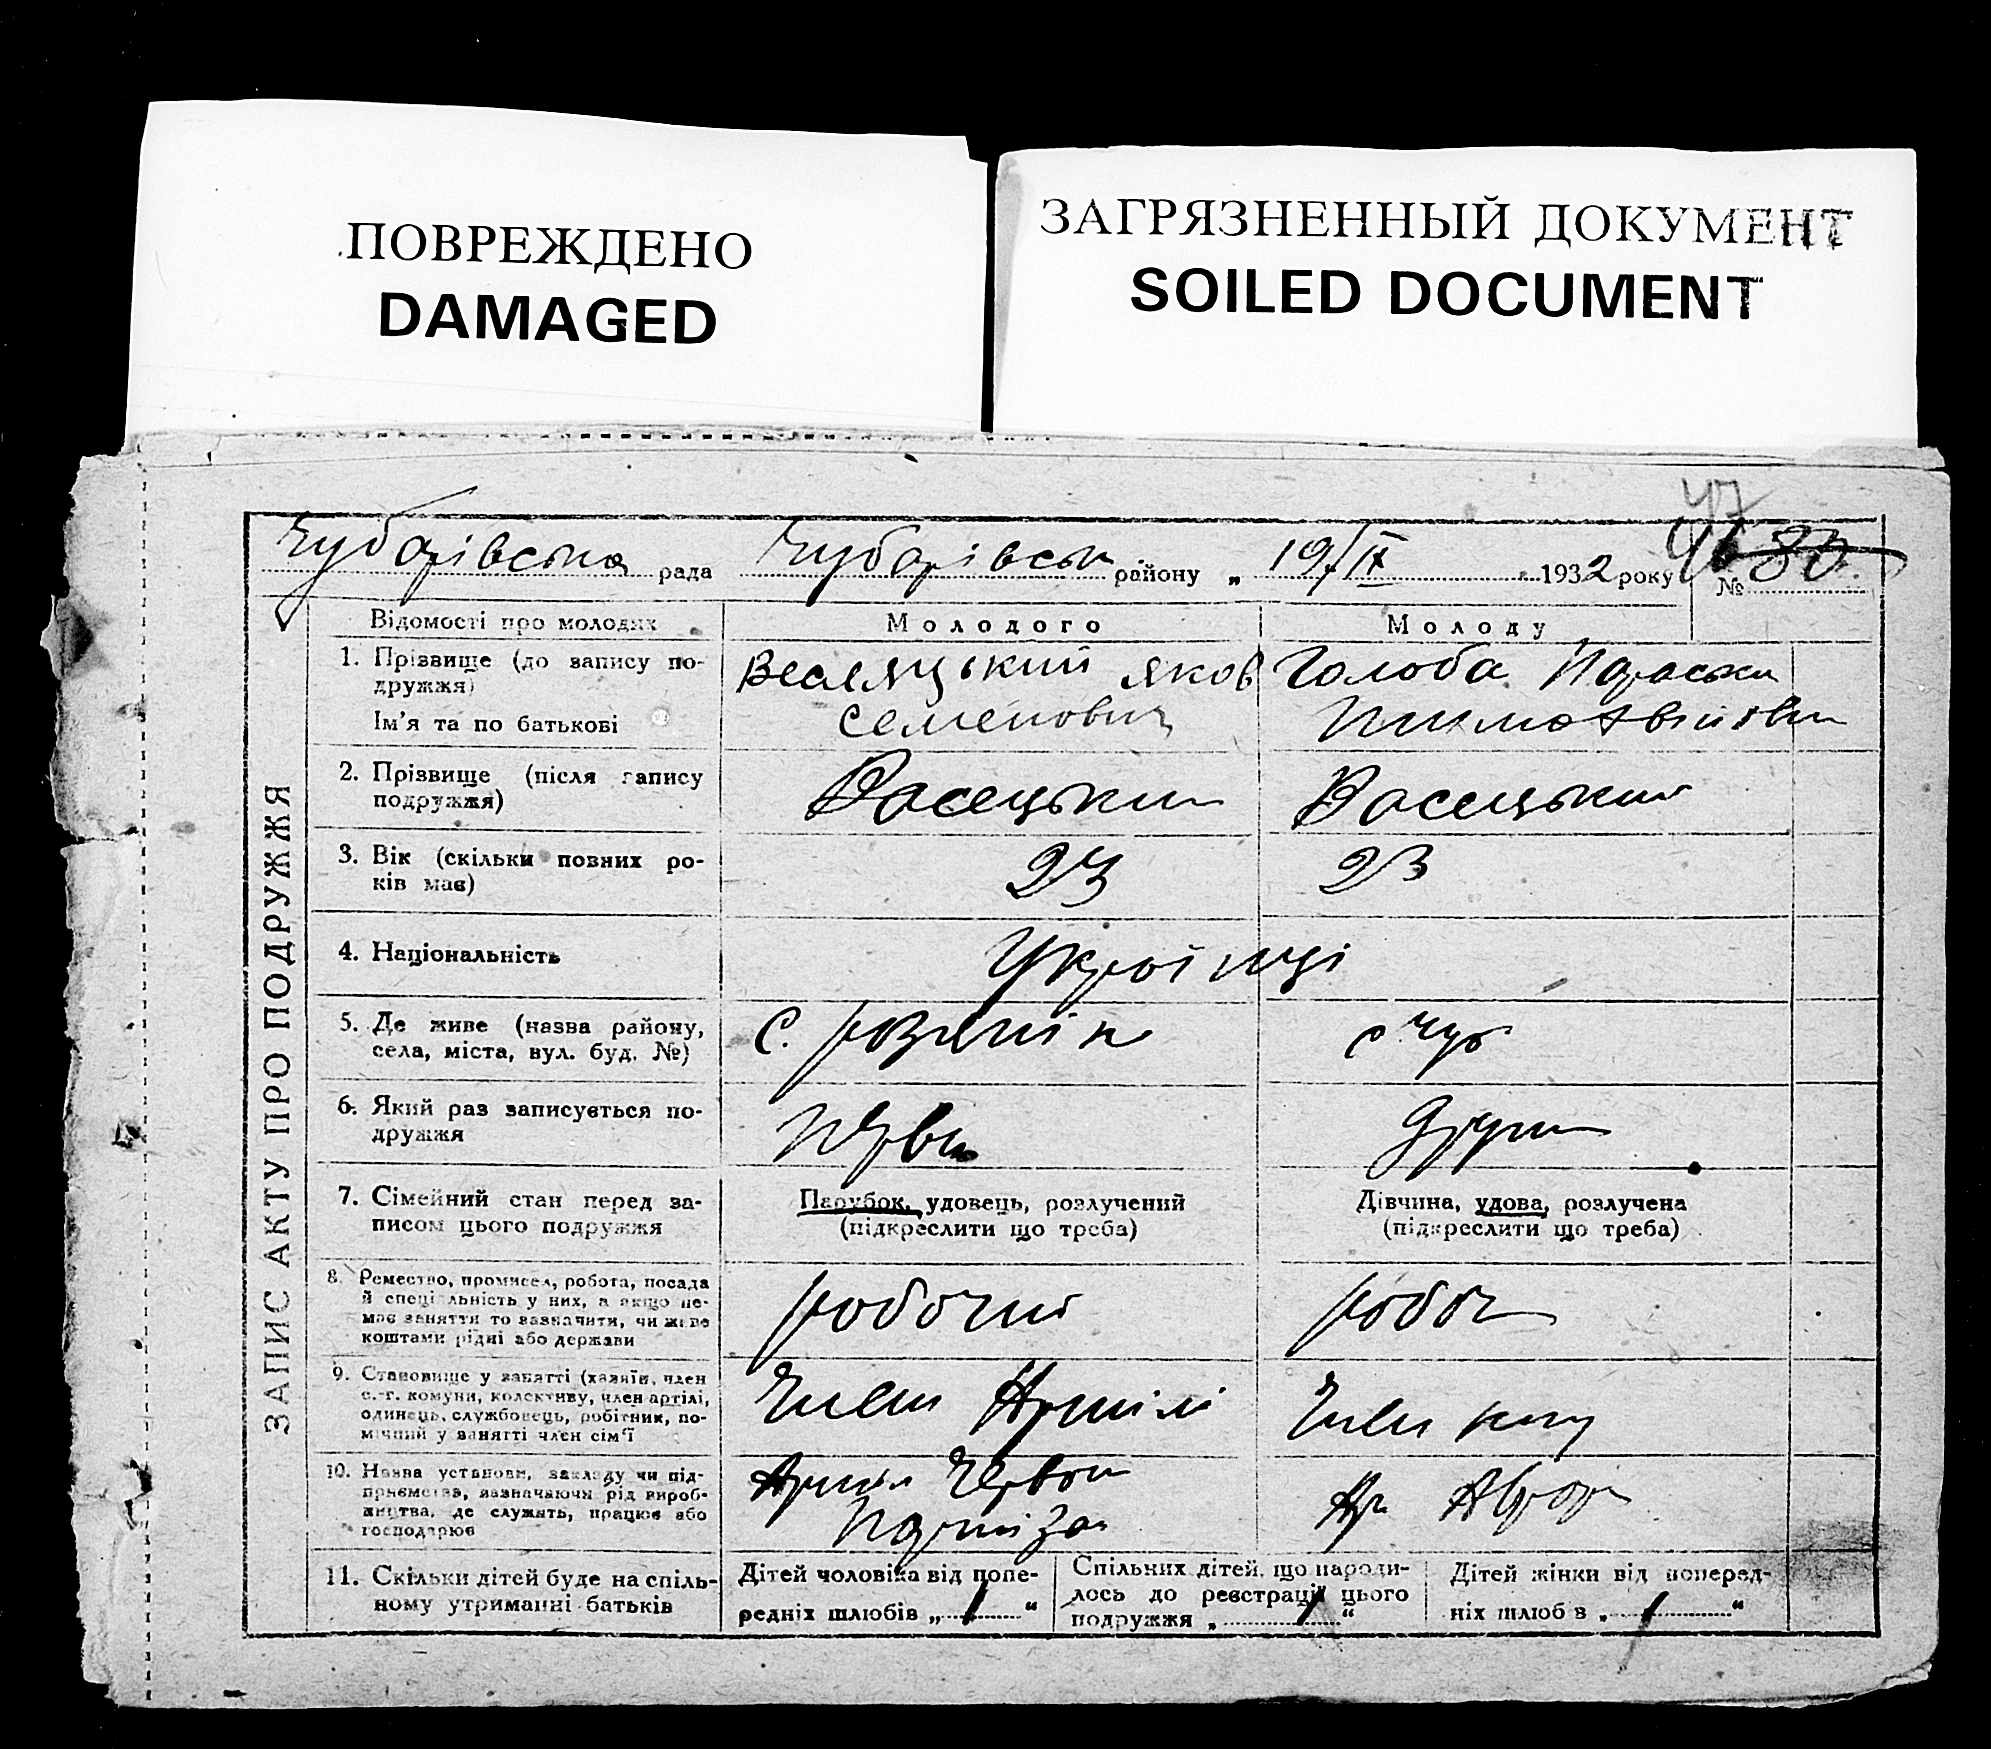 ПОВРЕЖДЕНО
DAMAGED
ЗАГРЯЗНЕННЫЙ ДОКУМЕНТ
SOILED DOCUMENT
47
Чубарівська рада Чубарівськ району „ 19/ІХ 1932 року № 83
ЗАПИС АКТУ ПРО ПОДРУЖЖЯ
Відомості про молодих
Молодого
Молоду
1. Прізвище (до запису по-
дружжя)
Ім'я та по батькові
Яков
Семенович
Голоба Параска
2. Прізвище (після запису
подружжя)
Васецький
Васецький
3. Вік (скільки повних ро-
ків має)
23
23
4. Національність
Українці
5. Де живе (назва району,
села, міста, вул. буд. №)
С.
с Чуб
6. Який раз записується по-
дружжя
7. Сімейний стан перед за-
писом цього подружжя
Парубок, удовець, розлучений
(підкреслити що треба)
Дівчина, удова, розлучена
(підкреслити що треба)
8. Ремество, промисел, робота, посада
й спеціальність у них, а якщо не-
має заняття то зазначити, чи живе
коштами рідні або держави
робочий
робоч
9. Становище у занятті (хазяїн, член
с.-г. комуни, колективу, член артілі,
одинець, службовець, робітник, по-
мічний у занятті член сім'ї
Член Артілі
Член
10. Назва установи, закладу чи під-
приємства, зазначаючи рід вироб-
ництва, де служить, працює або
господарює
Артіл Червон
Партізан
Ар Аврора
11. Скільки дітей буде на спіль-
ному утриманні батьків
Дітей чоловіка від попе-
редніх шлюбів „ / “
Спільних дітей, що народи-
лось до реєстрації цього
подружжя „ / “
Дітей жінки від поперед-
ніх шлюбів „ / “